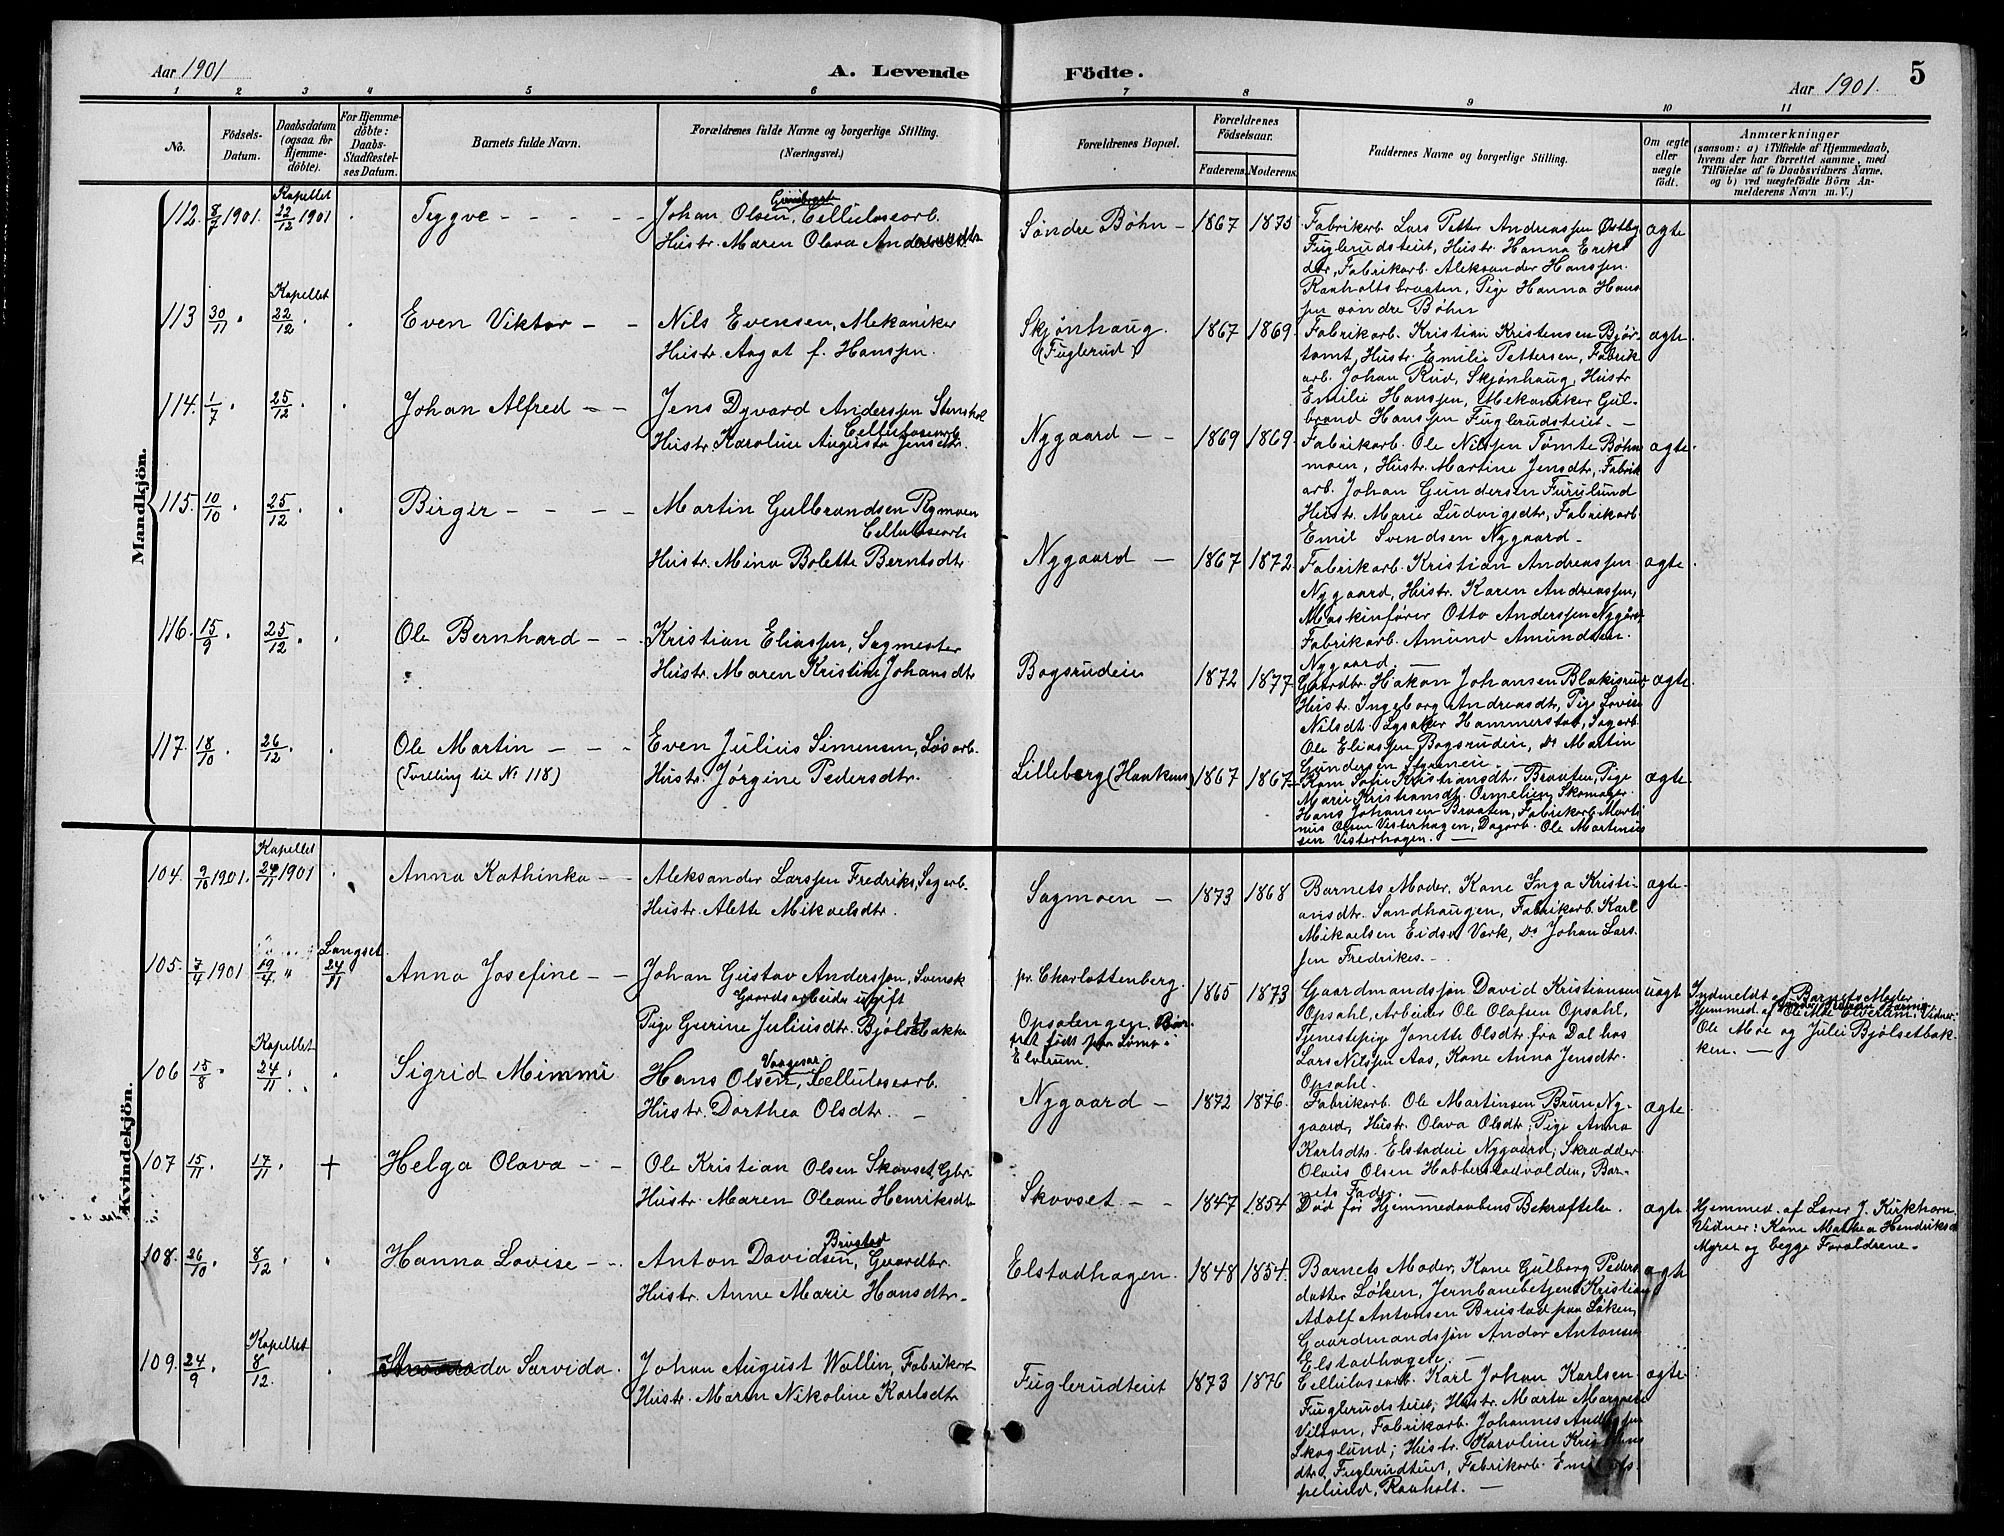 Aar 1901
A. Levende Födte.
Aar 1901.
5
1 2 3 4 5 6 7 8 9 10 11
No.
Födsels-Datum.
Daabsdatum (ogsaa for Hjemme-döbte).
For Hjemme-döbte: Daabs-Stadfæstel-ses Datum.
Barnets fulde Navn.
Forældrenes fulde Navne og borgerlige Stilling.
(Næringsvei.)
Forældrenes Bopæl.
Forældrenes Födselsaar.
Faderens. Moderens.
Faddernes Navne og borgerlige Stilling.
Om ægte eller uægte födt.
Anmærkninger
(saasom: a) i Tilfælde af Hjemmedaab,
hvem der har forrettet samme, med
Tilföielse af to Daabsvidners Navne,
og b) ved uægtefödte Börn An-
melderens Navn m. V.)
Mandkjön.
112. 8/7 1901. Kapellet 22/12 1901 Tryggve
Johan Olsen, Cellulosearb.
Hustr. Maren Olava Andersdtr
Søndre Bøhn 1867 1875
Fabrikarb. Lars Petter Andreassen Østby
Fuglerudsteiet, Hustr. Hanna Eriks
dtr, Fabrikarb. Aleksander Hanssen
Raaholtsbraaten, Pige Hanna Hans
sen søndre Bøhn
ægte
113 30/11 Kapellet 22/12 Even Viktor
Nils Evensen, Mekaniker
Hustr. Aagot f. Hanssen.
Skjønhaug (Fuglerud) 1867 1869.
Fabrikarb. Kristian Kristensen Bjør-
tomt, Hustr. Emilie Pettersen, Fabrik
arb. Johan Rud, Skjønhaug, Hustr
Emilie Hanssen, Mekaniker Gul-
brand Hanssen Fuglerudsteiet.
ægte
114. 1/7 25/12 Johan Alfred
Jens Dyvard Anderssen Stenshol
Cellulosearb.
Hustr. Karoline Augusta Jensdtr.
Nygaard 1869 1869.
Fabrikarb. Ole Nilssen Tømte Bøhn
moen, Hustr. Martine Jensdtr, Fabrik
arb. Johan Gundersen Furulund
Hustr. Marie Ludvigsdtr, Fabrikarb
Emil Svendsen Nygaard
ægte
115. 10/10 25/12 Birger
Martin Gulbrandsen Rymoen
Cellulosearb
Hustr. Mina Bolette Berntsdtr
Nygaard 1867 1872
Fabrikarb. Kristian Andreassen
Nygaard, Hustr. Karen Andreassen,
Maskinfører Otto Anderssen Nygård
Fabrikarb. Amund Amundsen.
Nygaard.
ægte
116. 15/9 25/12 Ole Bernhard
Kristian Eliassen, Sagmester
Hustr. Maren Kristine Johansdtr
Bogsrudeie 1872 1877
Gaardbr. Håkon Johansen Blakisrud
Hustr. Ingeborg Andreasdtr, Pige Lovise
Nilsdt. Lysaker Hammerstad, Sagarb
Ole Eliassen Bogsrudeie, Do Martin
Gundersen
ægte.
117. 18/10 26/12 Ole Martin
(Tvilling til No 118)
Even Julius Simensen, Løsarb.
Hustr. Jørgine Pedersdtr.
Lilleberg (Haakens) 1867 1867
Kone Sofie Kristiansdtr. Braaten, Pige
Marie Kristiansdt. Ormelien, Skomager
Hans Johansen Braaten, Fabrikarb. Marti
nus Olsen Vesterhagen, Dagarb. Ole Martinius
sen Vesterhagen.
ægte
Kvindekjön.
104. 9/10 1901. Kapellet 24/11 1901 Anna Kathinka
Aleksander Larssen Fredriks, Sagarb.
Hustr. Alette Mikaelsdtr.
Sagmoen 1873 1868
Barnets Moder, Kone Inga Kristi-
ansdtr. Sandhaugen, Fabrikarb. Karl
Mikaelsen Eidsv. Værk, Do Johan Lars-
sen Fredrikes.
ægte
105. 7/4 1901 19/4 Langset 24/11 Anna Josefine
Johan Gustav Anderssen, Svensk
Gaardsarbeider ugift
Pige Gurine Juliusdtr. Bjølsetbakke
pr. Charlottenberg
Opsalengen
Elverum.
1865 1873
Gaardmandssøn David Kristiansen
Opsahl, Arbeider Ole Olafsen Opsahl,
Tjenestepige Jonette Olsdtr. fra Dal hos
Lars Nilssen Aas, Kone Anna Jensdtr.
Opsahl.
uægt
Indmeldt af Barnets Moder
Hjemmed. af Vidner:
Ole Moe og Julie Bjølsetbak-
ken.
106 15/8 Kapellet 24/11 Sigrid Mimmi
Hans Olsen Vaagesar, Cellulosearb.
Hustr. Dorthea Olsdtr.
Nygaard 1872 1876.
Fabrikarb. Ole Martinsen Brun, Ny-
gaard, Hustr. Olava Olsdtr; Pige Anna
Karlsdtr. Elstadeie Nygaard; Skrædder
Olaus Olsen Habberstadvolden, Bar-
nets Fader.
ægte
107 15/11 17/11 + Helga Olava
Ole Kristian Olsen Skovset, Gbr.
Hustr. Maren Oleane Henriksdtr
Skovset 1847 1854
Død før Hjemmedaabens Bekræftelse.
ægte
Hjemmed. af Lærer J. Kirkhorn
Vidner: Kone Marthea Hendriksd
Myrer og begge Forældrene.
108. 26/10 8/12 Hanna Lovise
Anton Davidsen Brustad, Gaardbr.
Hustr. Anne Marie Hansdtr.
Elstadhagen 1848 1854.
Barnets Moder, Kone Gulborg Peders
datter Løken, Jernbanebetjent Kristian
Adolf Antonsen Brustad paa Løken,
Gaardmandssøn Andor Antonsen
Elstadhagen.
ægte
109. 24/9 Kapellet 8/12 Sarvida
Johan August Wallin, Fabrikarb
Hustr. Maren Nikoline Karlsdtr
Fuglerudteiet 1873 1876
Cellulosearb. Karl Johan Karlsen
Fuglerudsteiet, Hustr. Marta Margrete
Vilson, Fabrikarb. Johannes Anderssen
Skoglund; Hustr. Karoline Kristians
dtr. Fuglerudteiet, Fabrikarb. Emil
Raaholt.
ægte